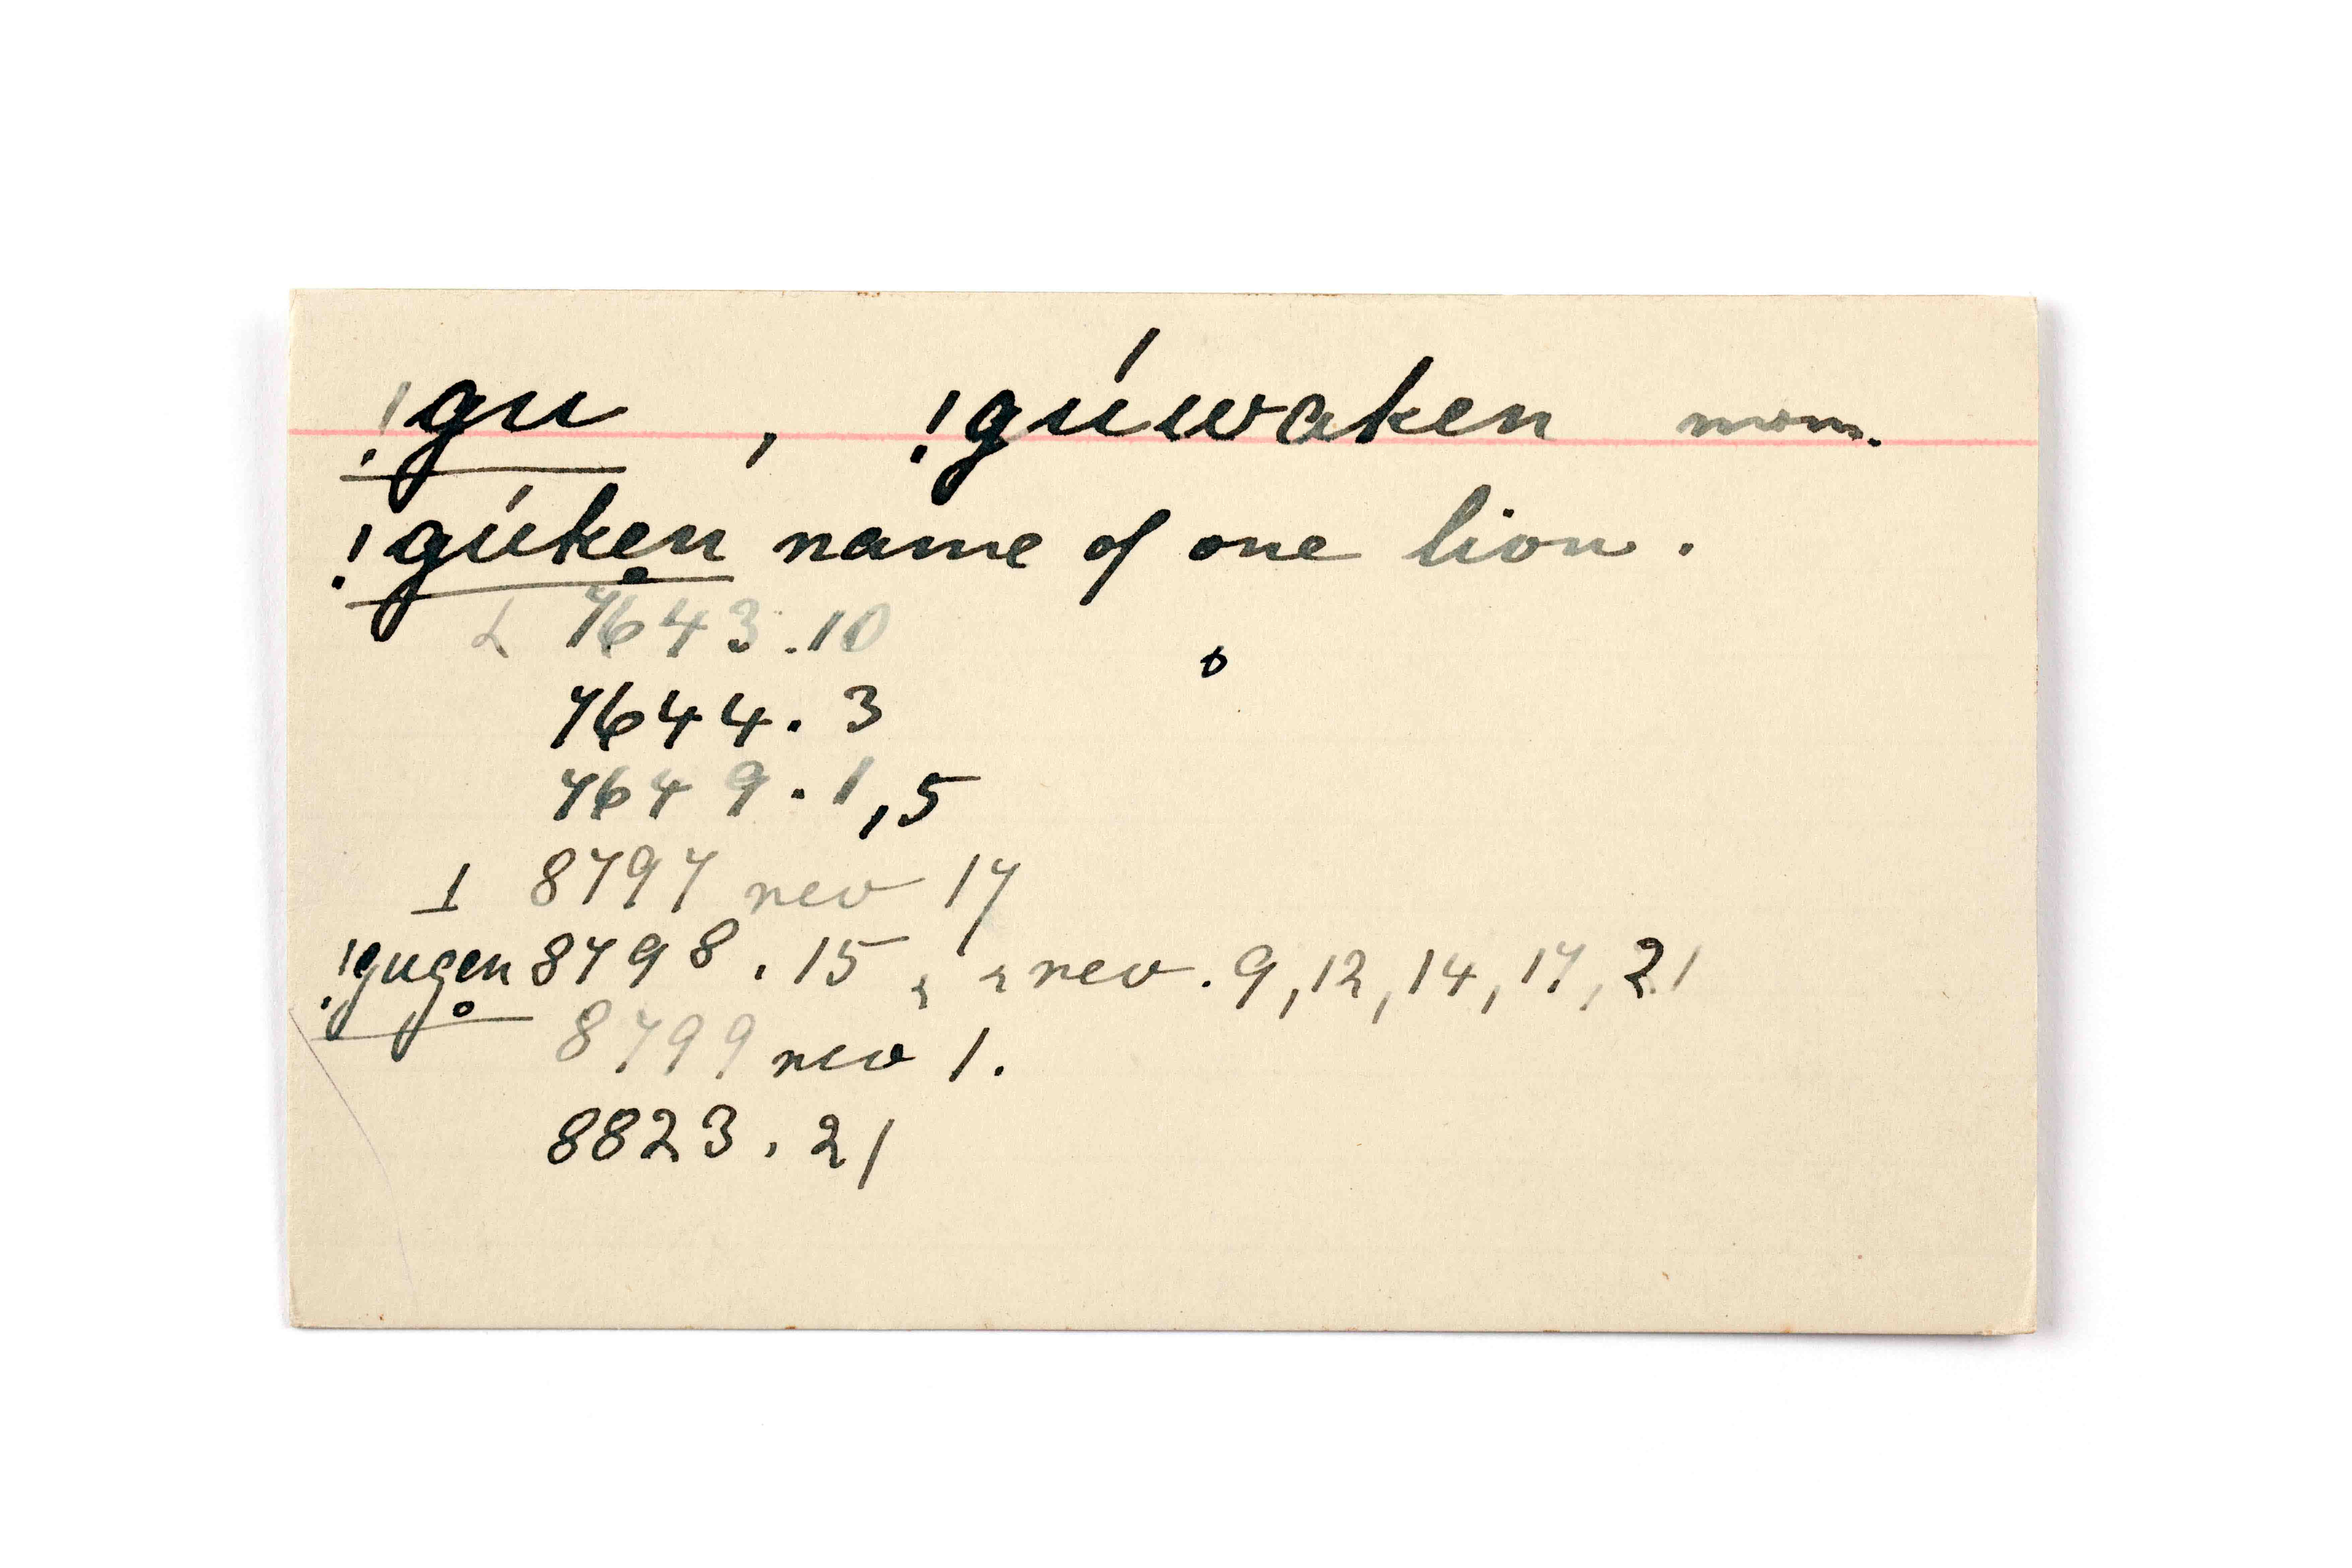 !gu , !gúwaken nom.
!gúken name of one lion.
L 7643.10
7644.3
7649.1,5
1 8797 rev 17
!gugen 8798.15, rev. 9,12,14,17,21
8799 rev 1.
8823.21